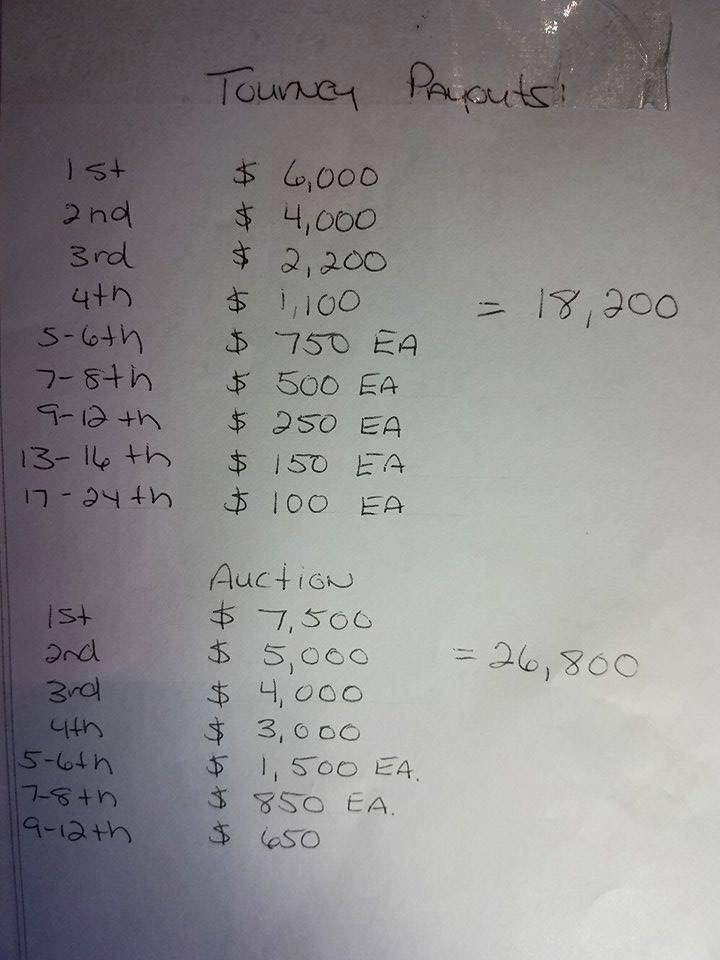 Tourney Payouts:
1st $ 6,000
2nd $ 4,000
3rd $ 2,200
4th $ 1,100 = 18,200
5-6th $ 750 EA
7-8th $ 500 EA
9-12th $ 250 EA
13-16th $ 150 EA
17-24th $ 100 EA
Auction
1st $ 7,500
2nd $ 5,000 = 26,800
3rd $ 4,000
4th $ 3,000
5-6th $ 1,500 EA.
7-8th $ 850 EA.
9-12th $ 650